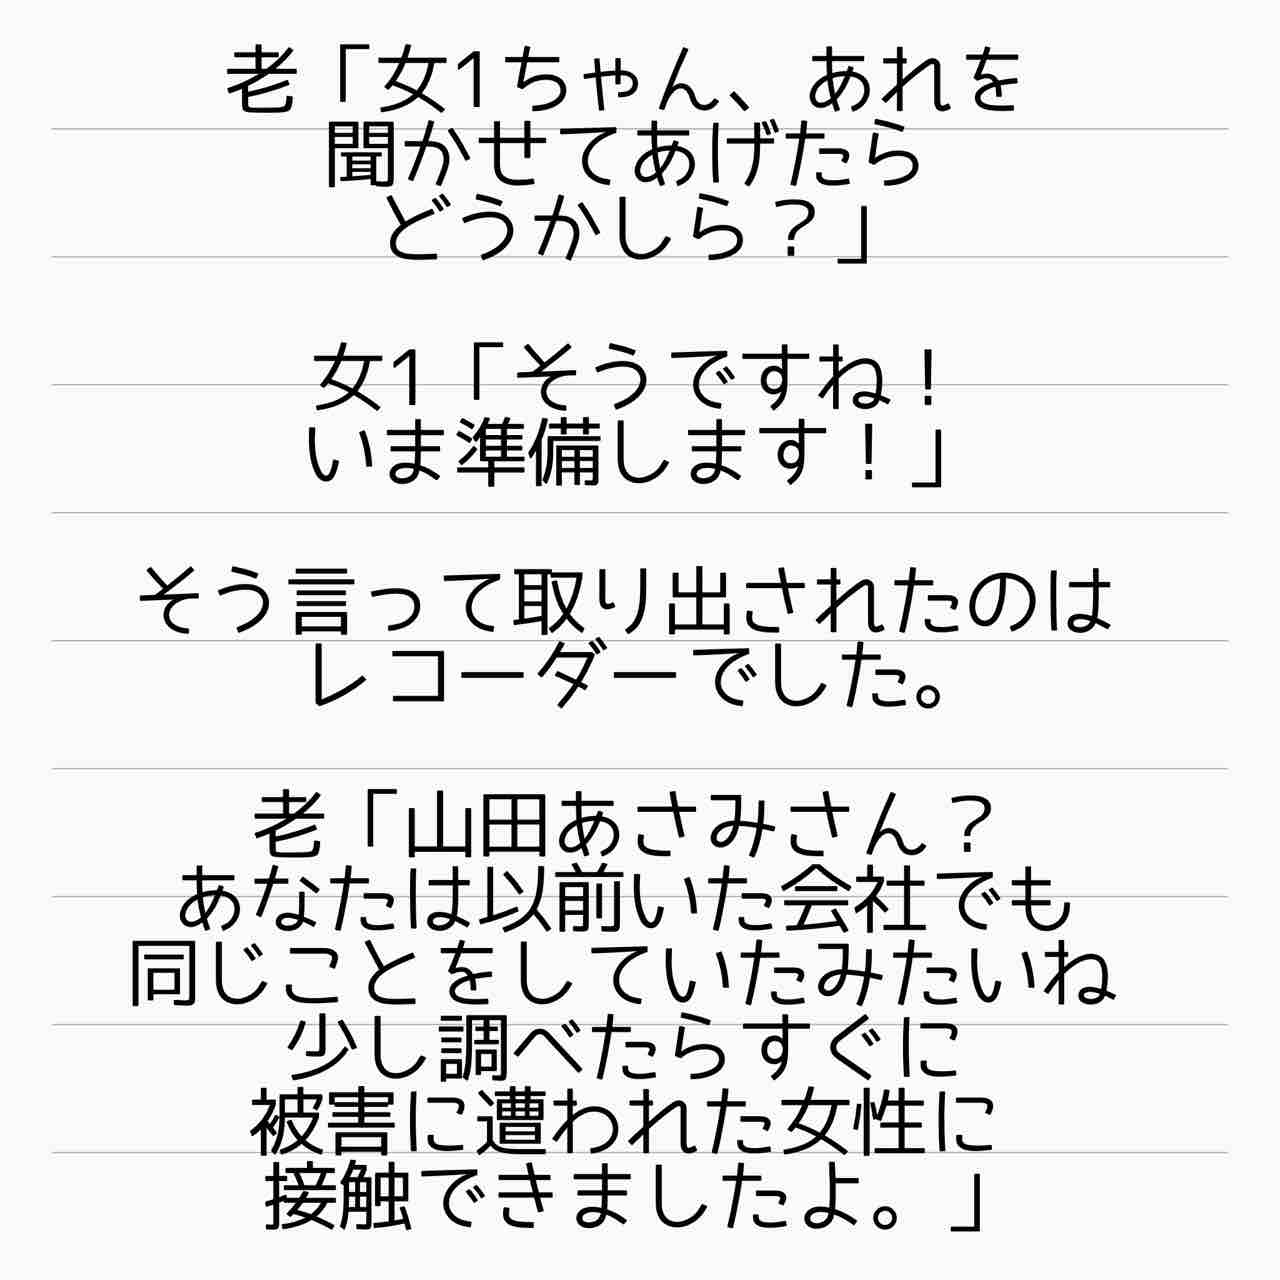 老「女1ちゃん、あれを
聞かせてあげたら
どうかしら？」
女1「そうですね！
いま準備します！」
そう言って取り出されたのは
レコーダーでした。
老「山田あさみさん？
あなたは以前いた会社でも
同じことをしていたみたいね
少し調べたらすぐに
被害に遭われた女性に
接触できましたよ。」